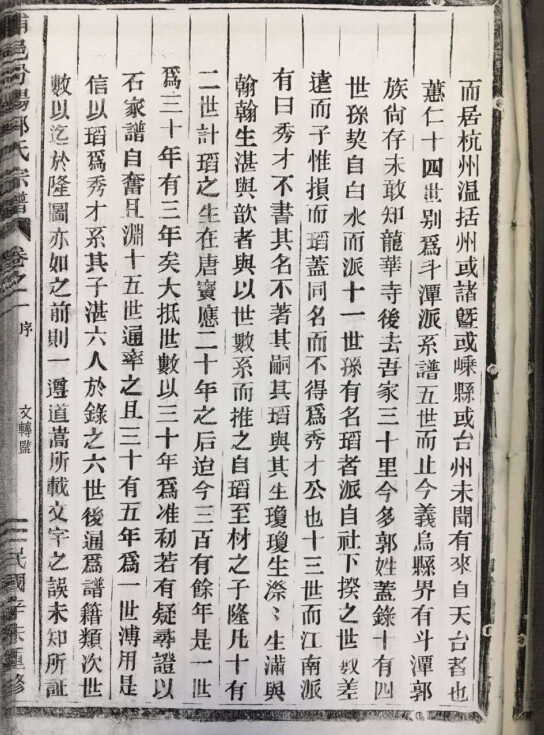 而居杭州温括州或諸曁或嵊縣或台州未聞有來自天台者也
蕙仁十四世别爲斗潭派系譜五世而止今義烏縣界有斗潭郭
族尙存未敢知龍華寺後去吾家三十里今多郭姓蓋錄十有四
世孫契自白水而派十一世孫有名瑫者派自社下揆之世数差
遠而子惟損而瑫蓋同名而不得爲秀才公也十三世而江南派
有曰秀才不書其名不著其嗣其瑫與其生瓊瓊生漈〻生滿與
翰翰生湛與歆者與以世數系而推之自瑫至材之子隆凡十有
二世計瑫之生在唐寳應二十年之后迨今三百有餘年是一世
爲三十年有三年矣大抵世數以三十年爲准初若有疑尋證以
石家譜自奮且淵十五世通率之且三十有五年爲一世溥用是
信以瑫爲秀才系其子湛六人於錄之六世後通爲譜籍類次世
數以迄於隆圖亦如之前則一遵道嵩所載文字之誤未知所証
浦邑汾陽郭氏宗譜
卷之一
序
文轉監
二
民國辛未重修